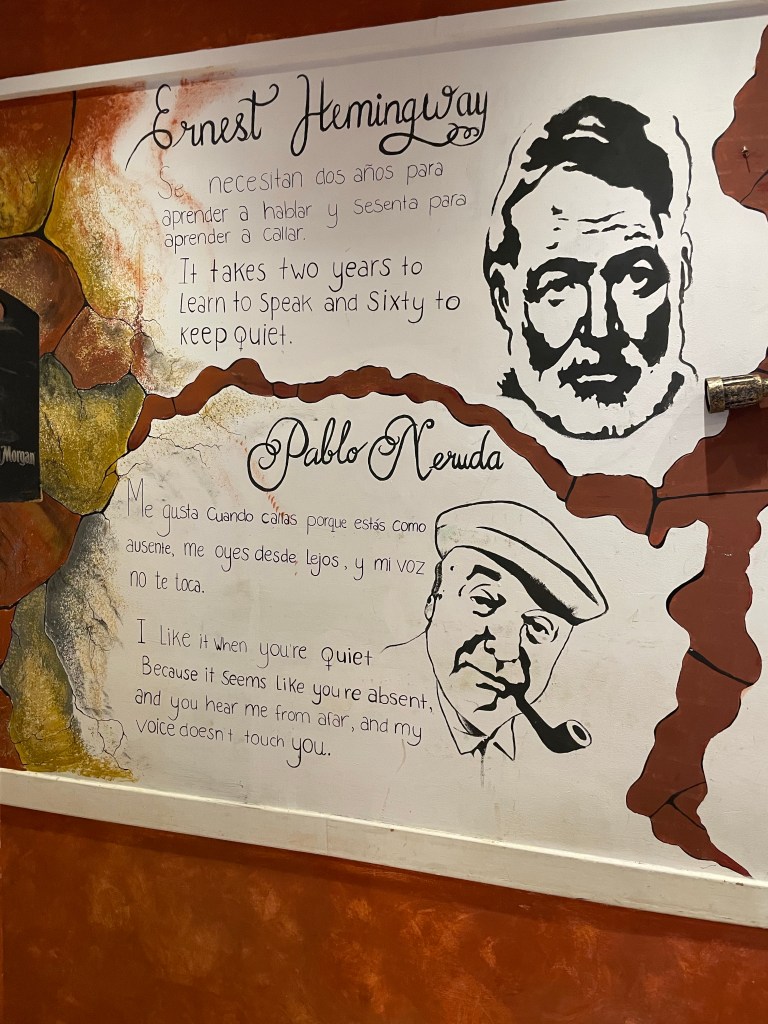 Ernest Hemingway
Se necesitan dos años para
aprender a hablar y sesenta para
aprender a callar.
It takes two years to
Learn to Speak and Sixty to
keep Quiet.
Morgan
Pablo Neruda
Me gusta Cuando callas porque estás como
ausente, me oyes desde lejos, y mi voz
no te toca.
I Like it when you're Quiet
Because it seems Like you're absent,
and you hear me from afar, and my
voice doesn't touch you.